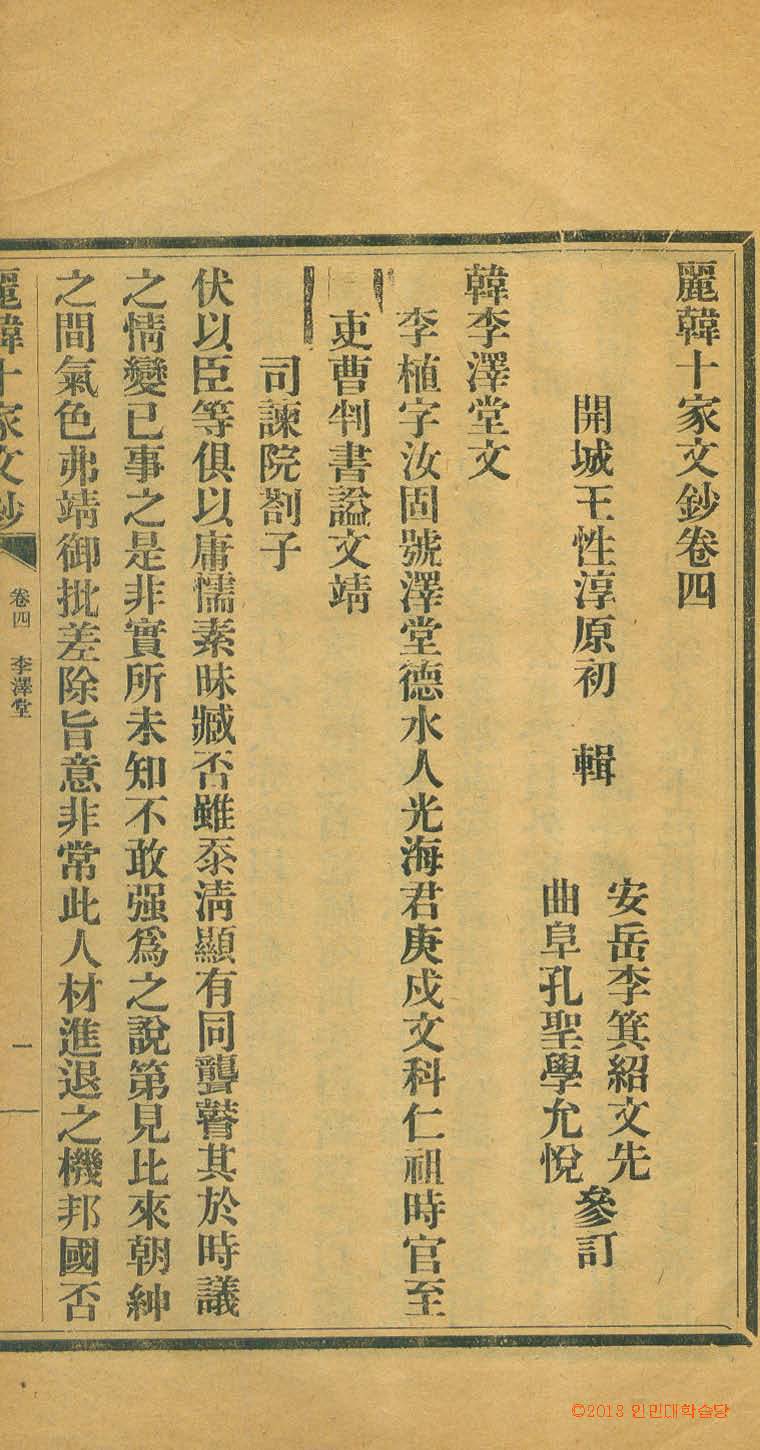 麗韓十家文鈔卷四
開城王性淳原初 輯
安岳李箕紹文先
曲阜孔聖學允悅
參訂
韓李澤堂文
李植字汝固號澤堂德水人光海君庚戍文科仁祖時官至
吏曹判書諡文靖
司諫院劄子
伏以臣等俱以庸懦素昧臧否雖忝淸顯有同聾瞽其於時議
之情變已事之是非實所未知不敢强爲之說第見比來朝紳
之間氣色弗靖御批差除旨意非常此人材進退之機邦國否
麗韓十家文鈔 卷四 李澤堂 一
©2013 인민대학습당